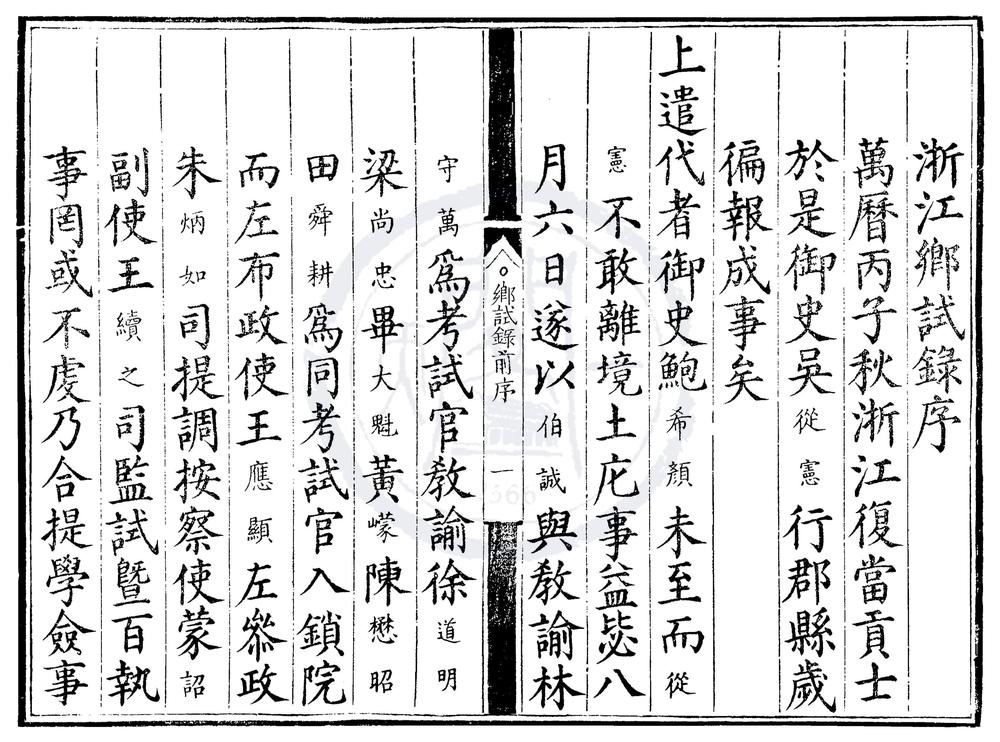 浙江鄉試錄序
萬曆丙子秋浙江復當貢士
於是御史吳從憲行郡縣歲
徧報成事矣
上遣代者御史鮑希顏未至而從
憲不敢離境土庀事益毖八
月六日遂以伯誠與教諭林
鄉試錄前序 一
守萬為考試官教諭徐道明
梁尚忠畢大魁黃㠓陳懋昭
田舜耕為同考試官入鎖院
而左布政使王應顯左叅政
朱炳如司提調按察使蒙詔
副使王續之司監試曁百執
事罔或不虔乃合提學僉事